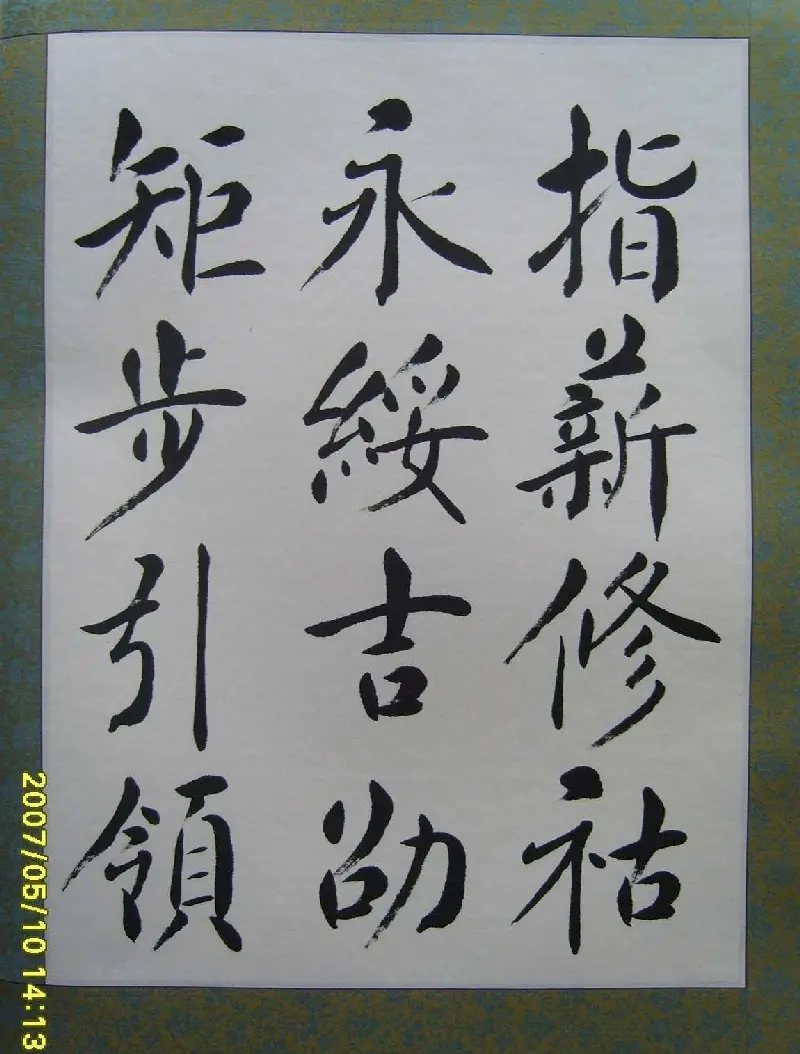 指薪修祜
永綏吉劭
矩步引領
2007/05/10 14:13